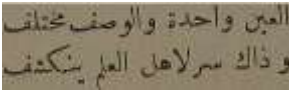 العين واحدة والوصف مختلف
وذاك سر لاهل العلم ينكشف